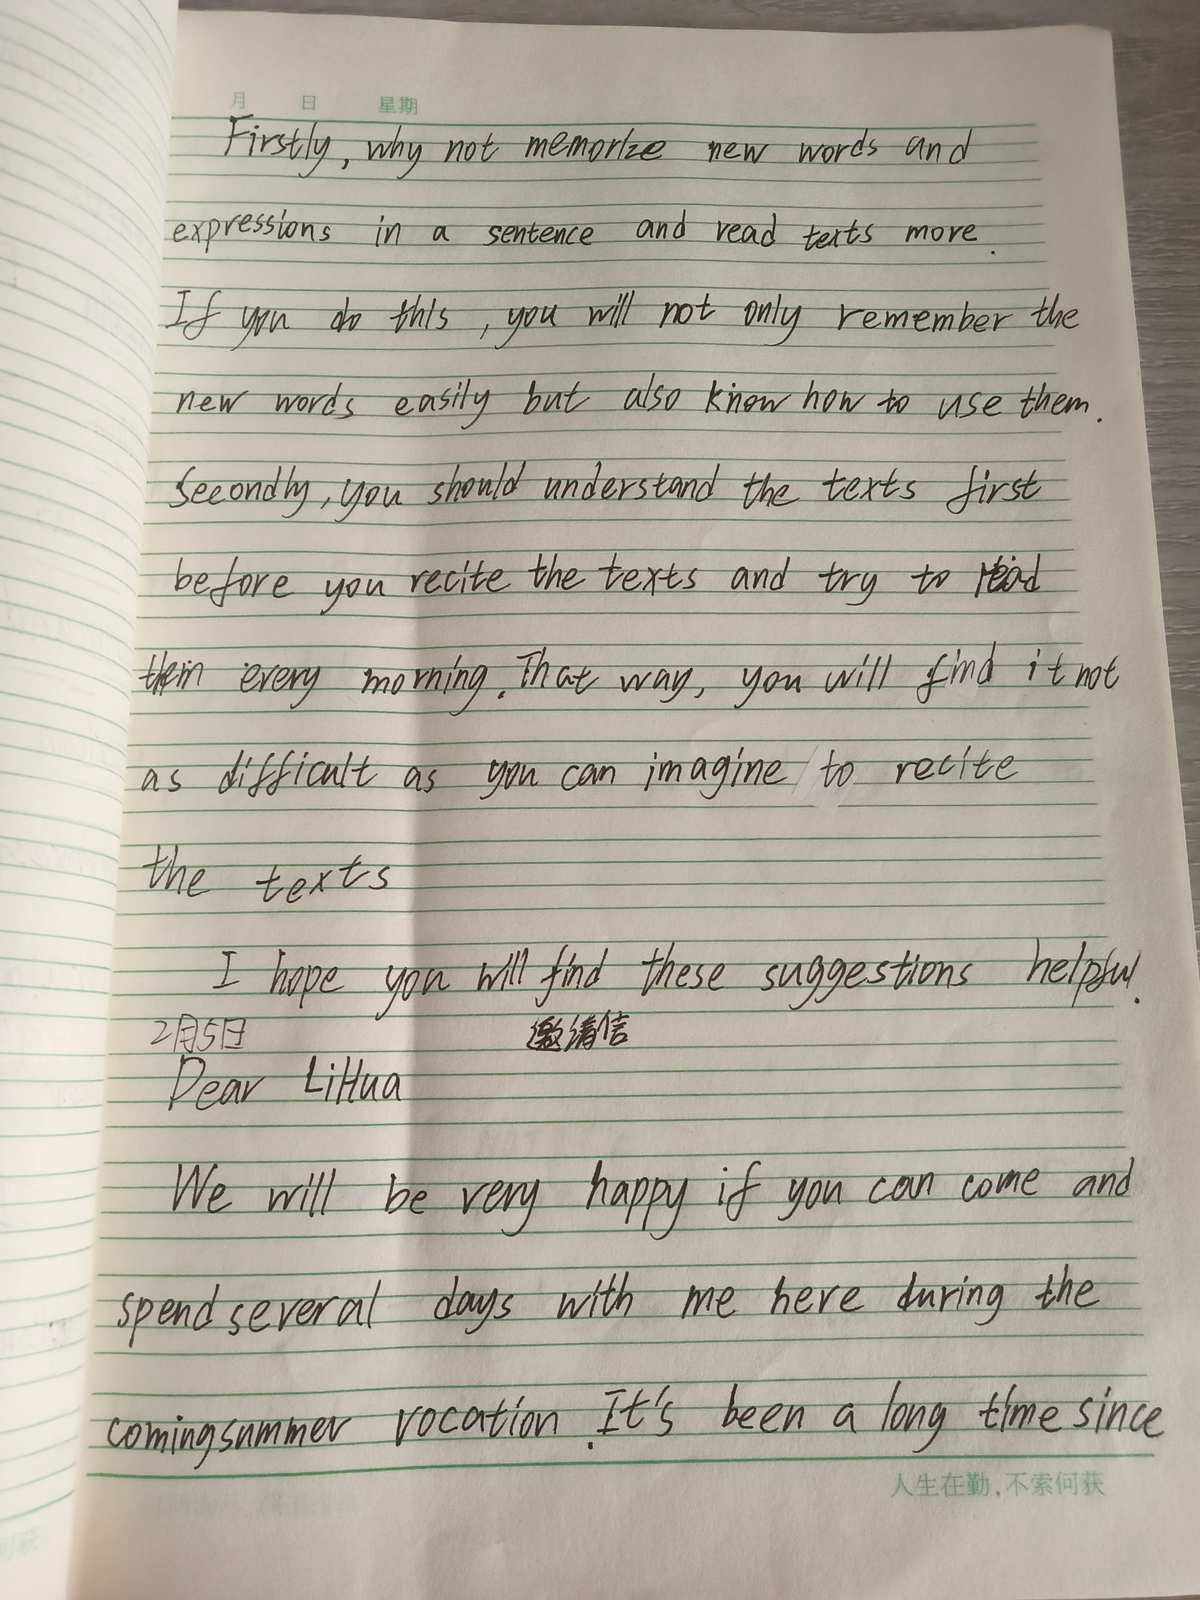 月 日 星期
Firstly, why not memorize new words and
expressions in a sentence and read texts more.
If you do this, you will not only remember the
new words easily but also know how to use them.
Secondly, you should understand the texts first
before you recite the texts and try to read
them every morning. That way, you will find it not
as difficult as you can imagine to recite
the texts
I hope you will find these suggestions helpful.
2月5日 邀请信
Dear LiHua
We will be very happy if you can come and
spend several days with me here during the
coming summer vocation. It's been a long time since
人生在勤,不索何获